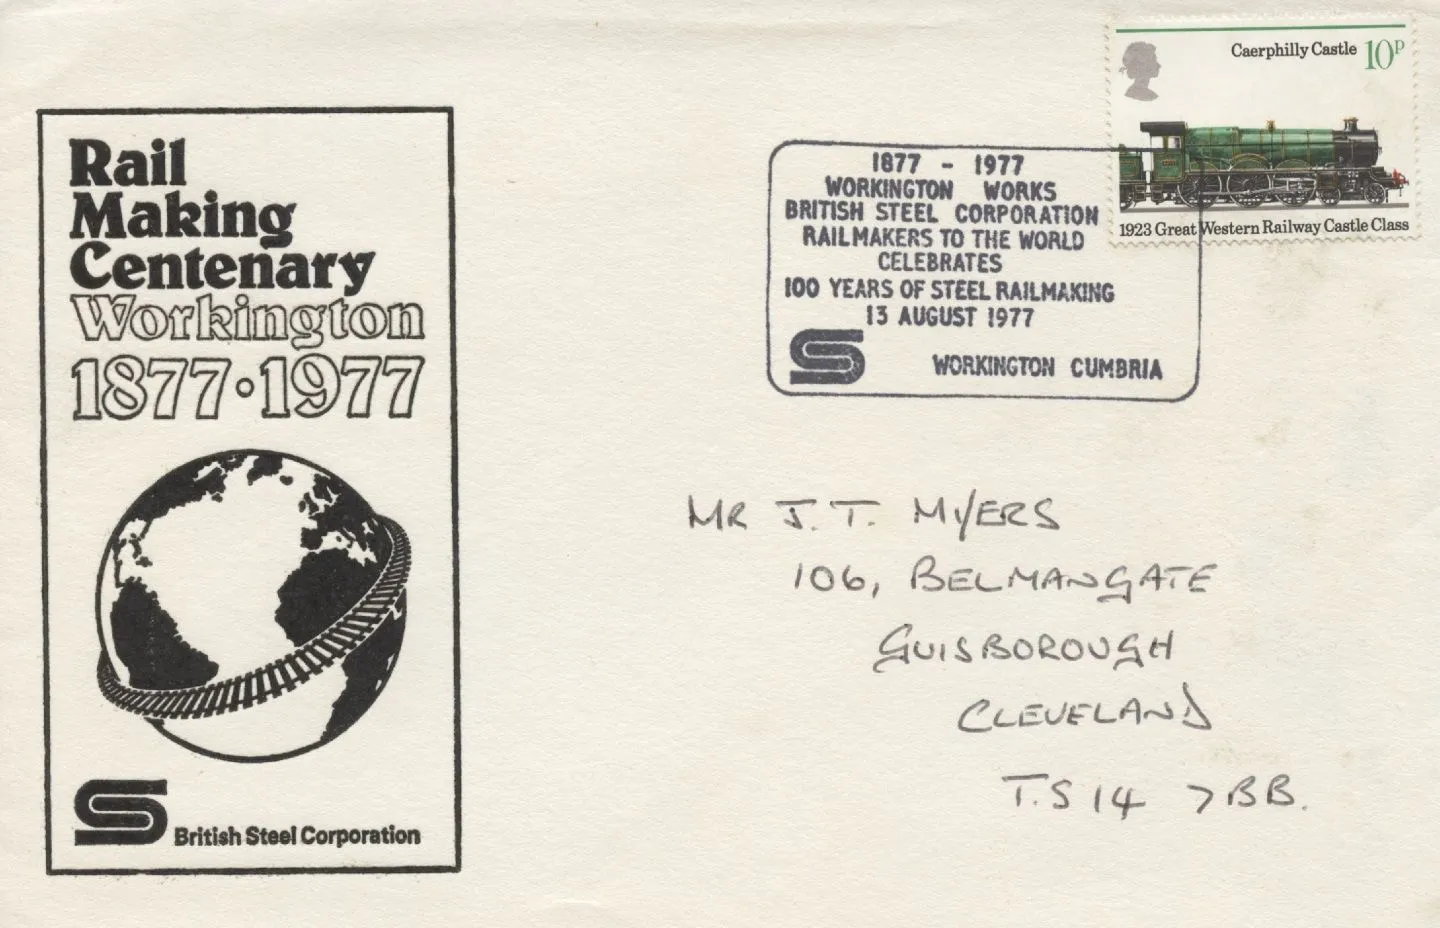 Rail
Making
Centenary
Workington
1877·1977
British Steel Corporation
1877 - 1977
WORKINGTON WORKS
BRITISH STEEL CORPORATION
RAILMAKERS TO THE WORLD
CELEBRATES
100 YEARS OF STEEL RAILMAKING
13 AUGUST 1977
WORKINGTON CUMBRIA
Caerphilly Castle 10P
1923 Great Western Railway Castle Class
MR J. T. MYERS
106, BELMANGATE
GUISBOROUGH
CLEVELAND
T.S 14 7BB.